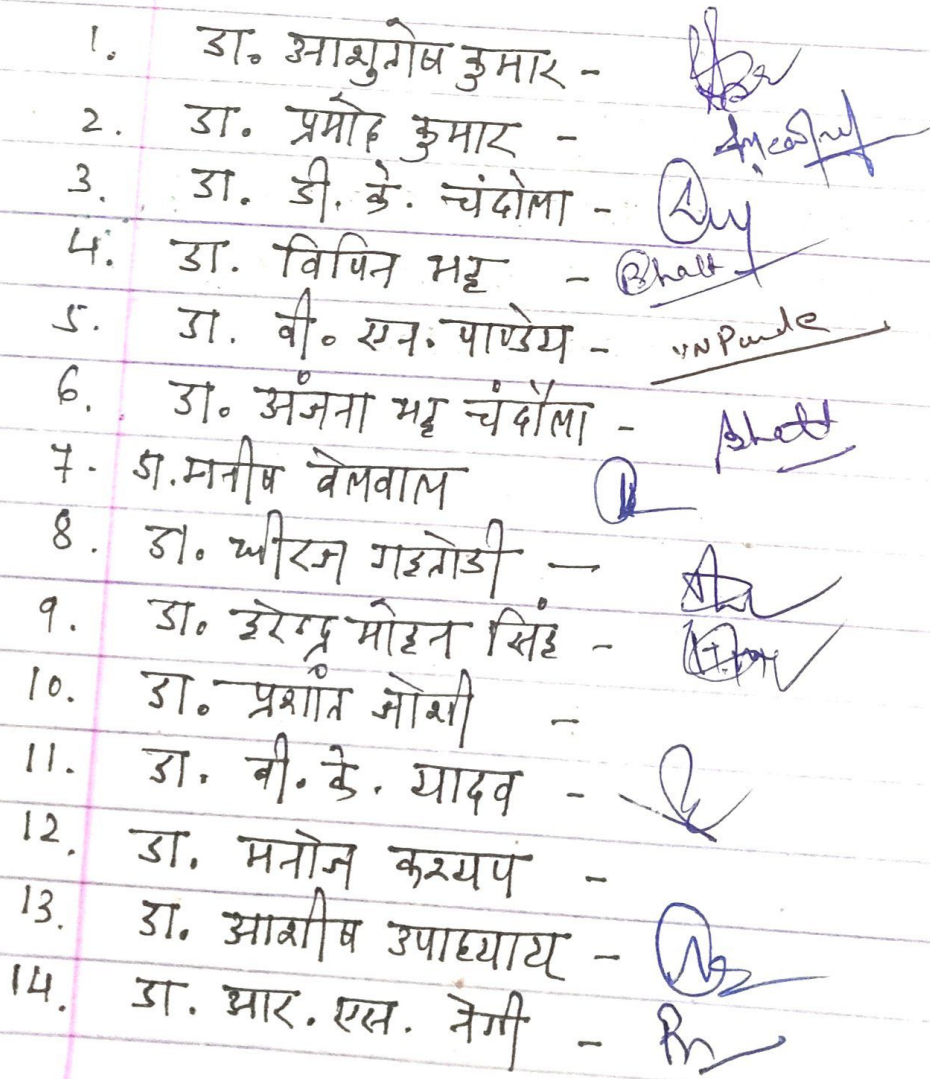 1. डा. आशुतोष कुमार -
2. डा. प्रमोद कुमार -
3. डा. डी. के. चंदोला -
4. डा. विपिन भट्ट - Bhatt
5. डा. वी. एन. पाण्डेय - VN Pande
6. डा. अंजना भट्ट चंदौला - Bhatt
7. डा. मनीष वेलवाल
8. डा. धीरज गहतोडी -
9. डा. हरेन्द्र मोहन सिंह -
10. डा. प्रशांत जोशी -
11. डा. वी. के. यादव -
12. डा. मनोज कश्यप -
13. डा. आशीष उपाध्याय -
14. डा. आर. एस. नेगी -